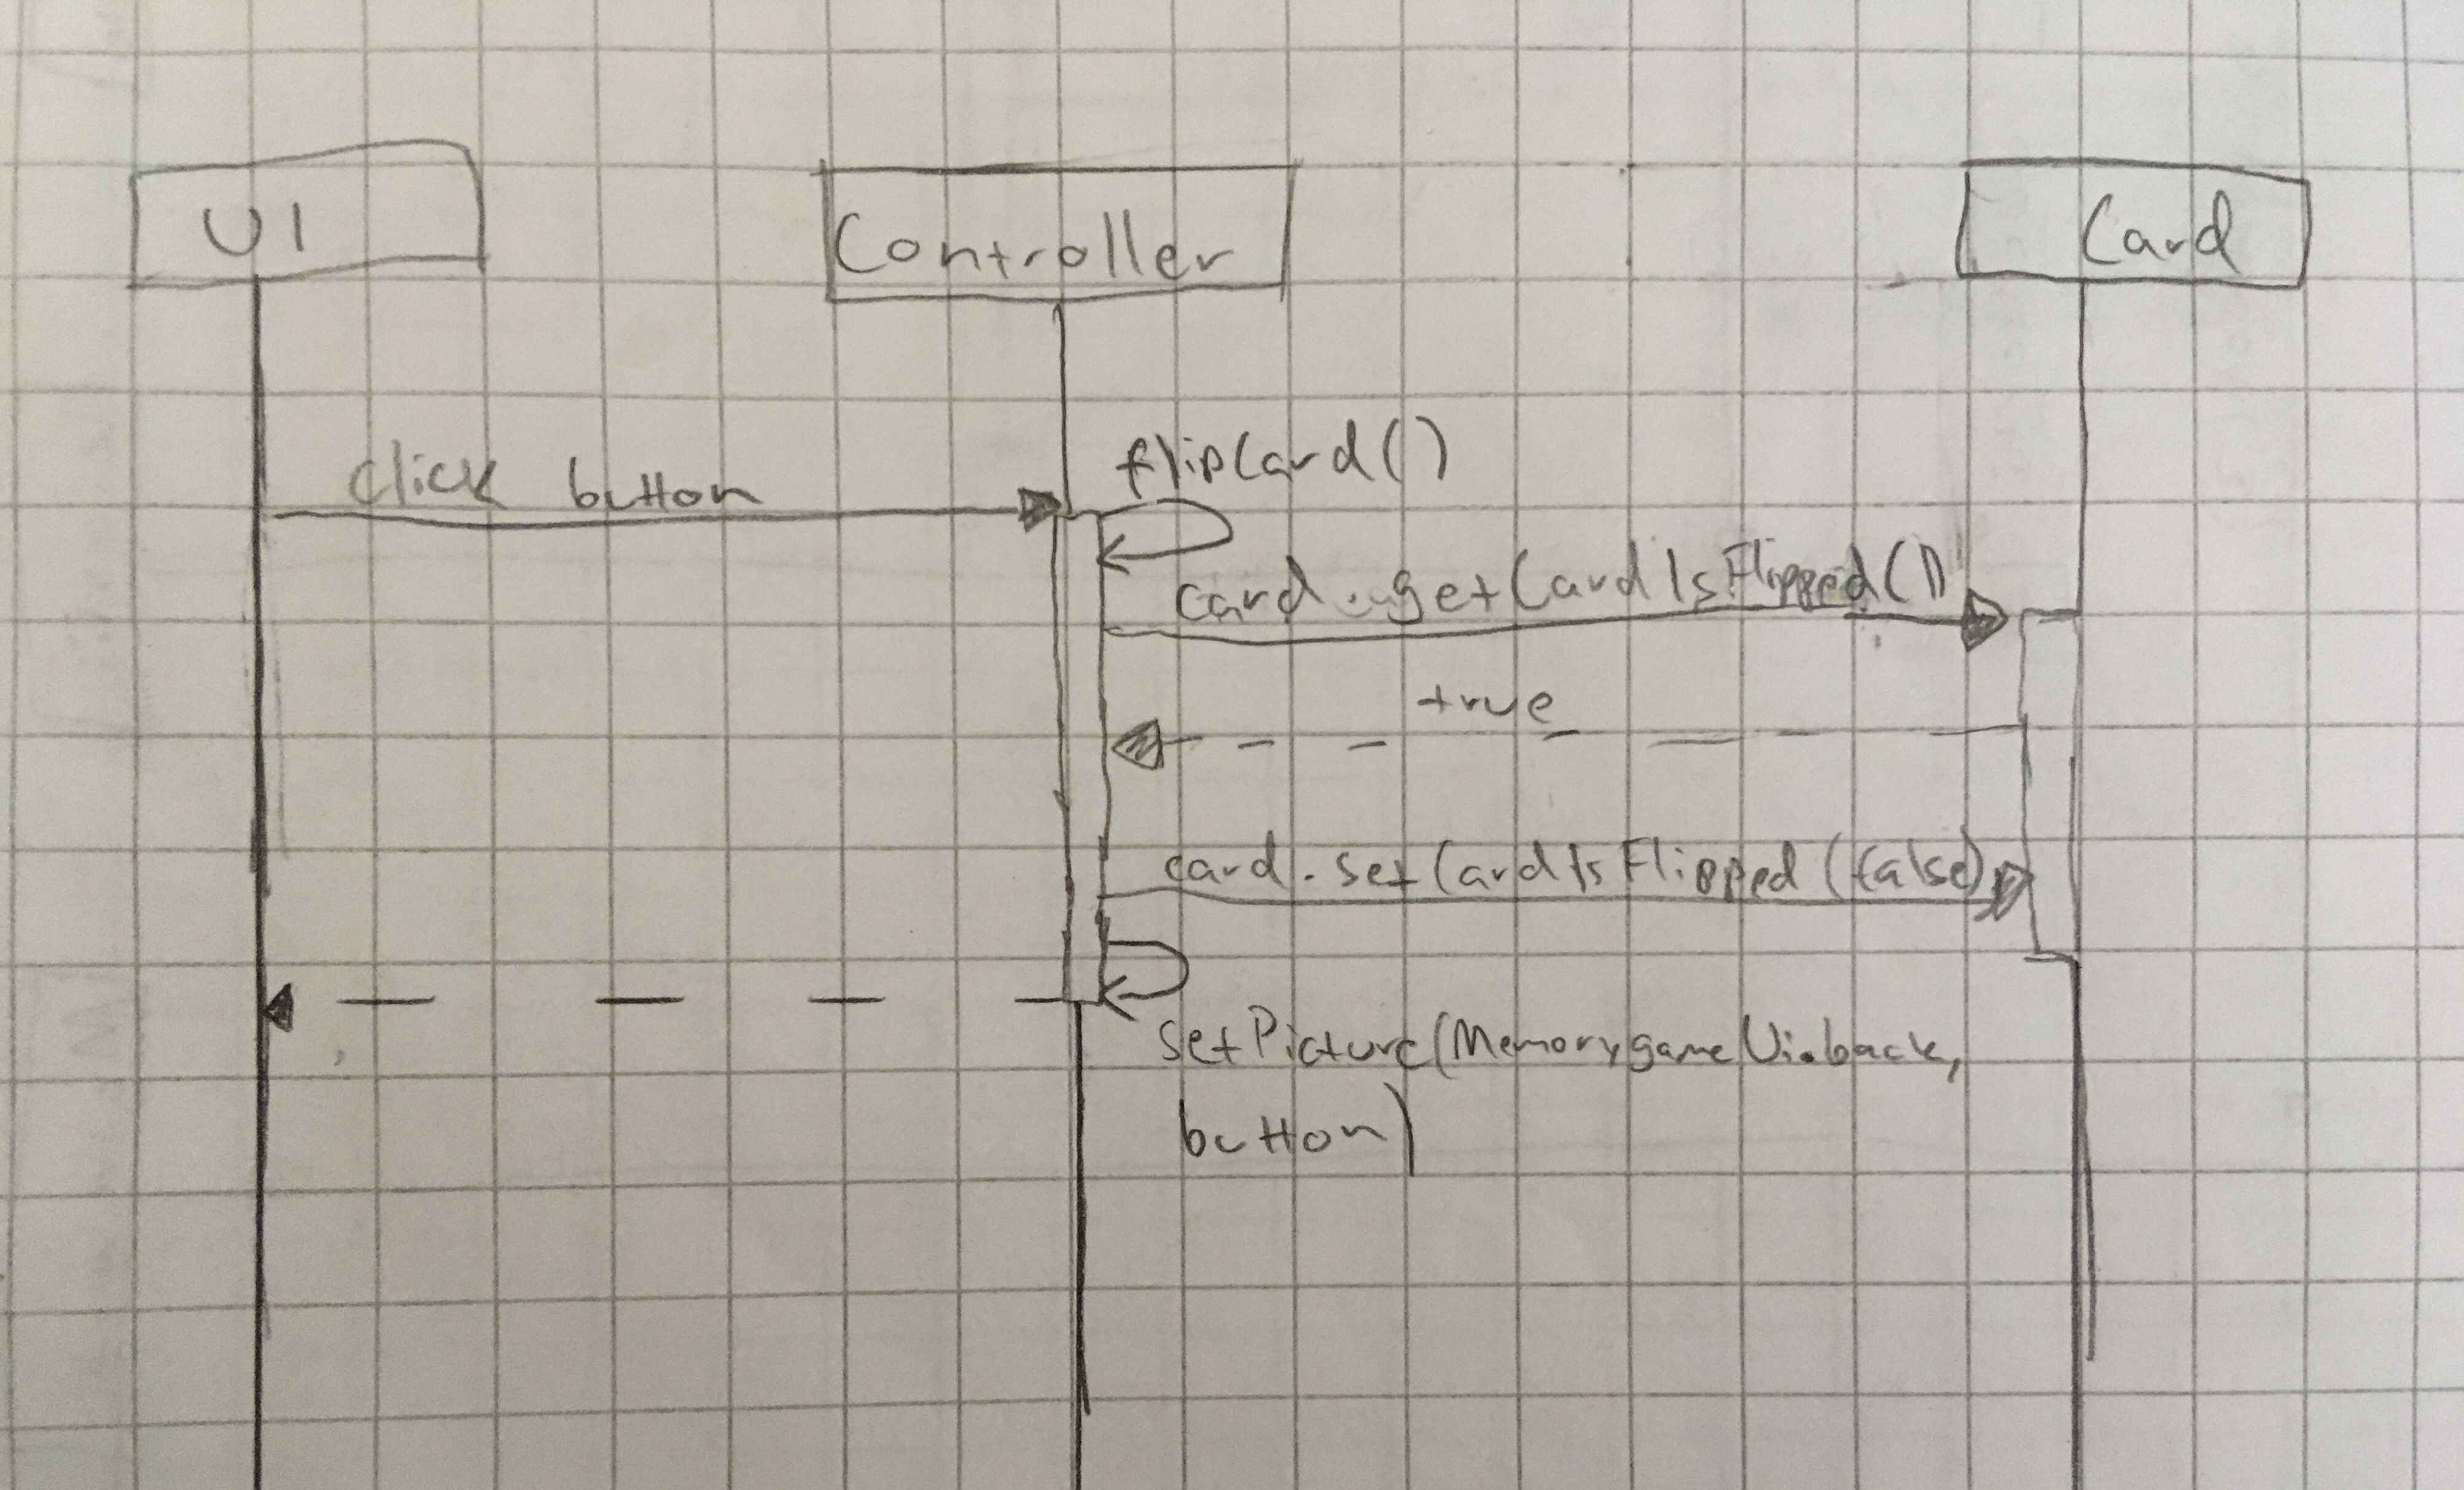 UI
Controller
Card
click button
flipCard()
card.getCardIsFlipped()
true
card.setCardIsFlipped(false)
setPicture(MemorygameUi.back,
button)